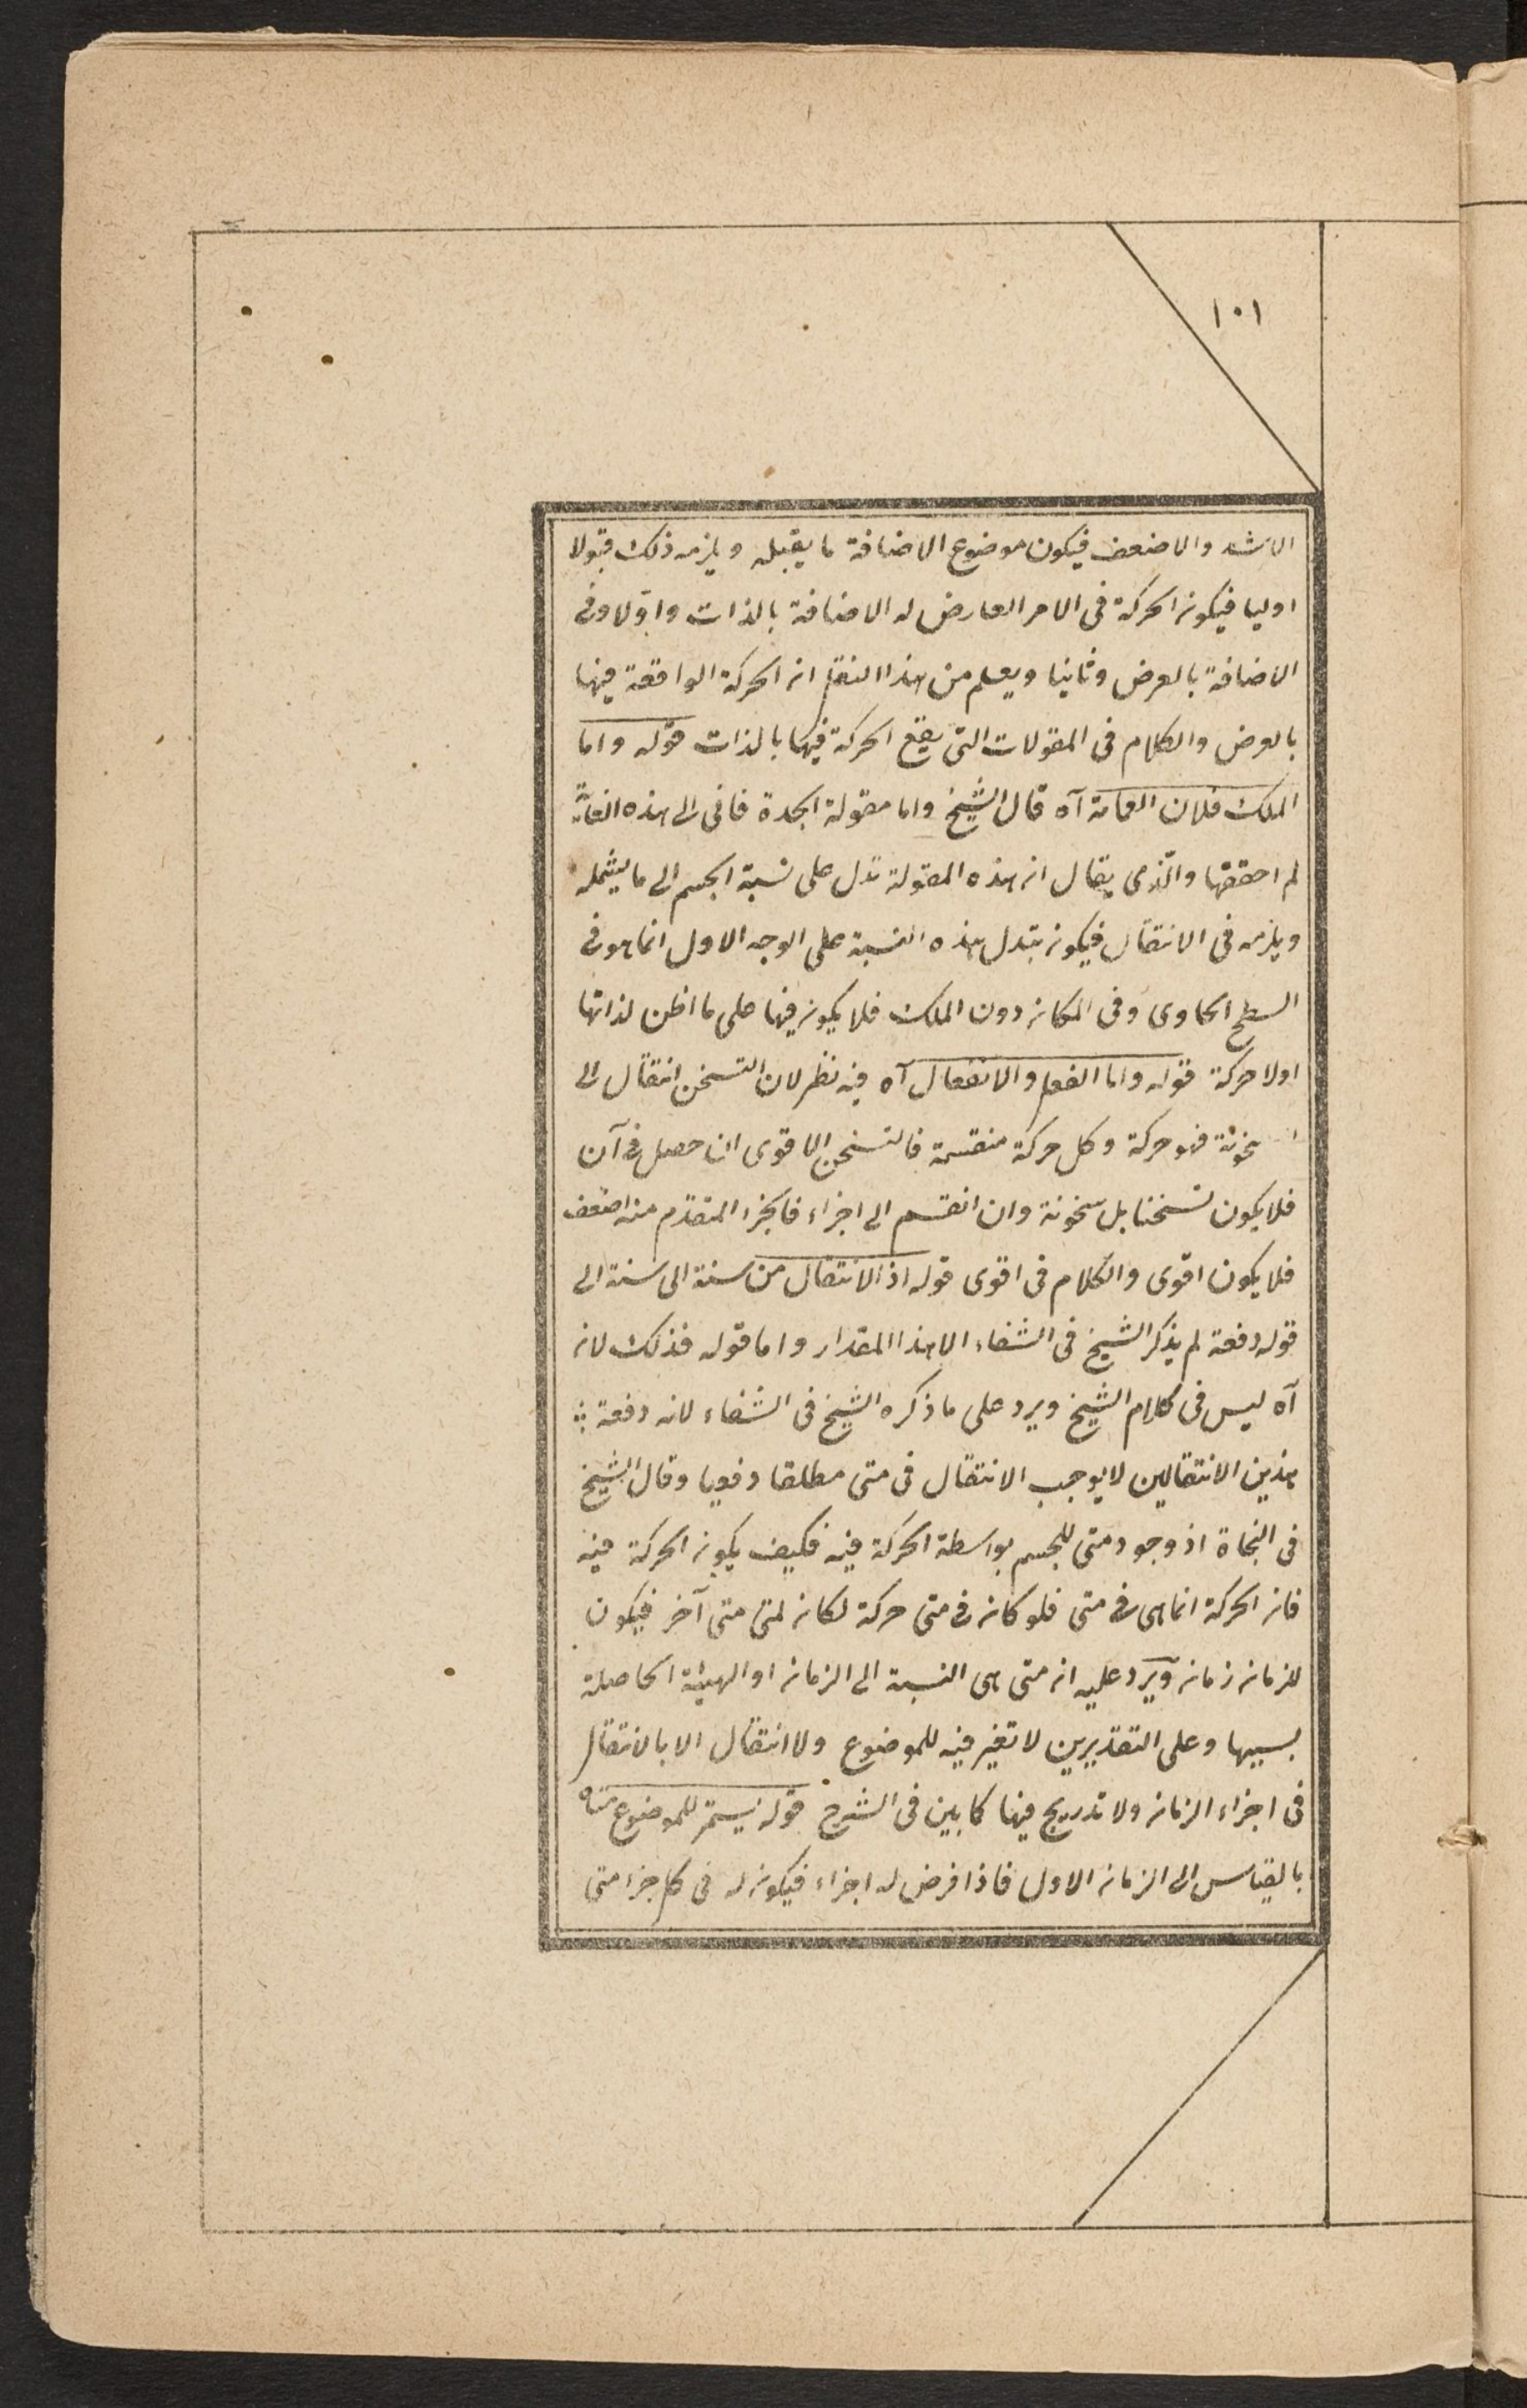 ١٠١
الاشد والاضعف فيكون موضوع الاضافة ما يقبله ويلزمه ذلك قبولا
اوليا فيكون الحركة فى الامر العارض له الاضافة بالذات واوّلا وفى
الاضافة بالعرض وثانيا ويعلم من هذا النقل ان الحركة الواقعة فيها
بالعرض والكلام فى المقولات التى يقع الحركة فيها بالذات قوله واما
الملك فلان العمامة آه قال الشيخ واما مقولة الجدة فانى الى هذه الغاية
لم احققها والّذى يقال ان هذه المقولة تدل على نسبة الجسم الى ما يشمله
ويلزمه فى الانتقال فيكون تبدل هذه النسبة على الوجه الاول انما هو فى
السطح الحاوى وفى المكان دون الملك فلا يكون فيها على ما اظن لذاتها
اولا حركة قوله واما الفعل والانفعال آه فيه نظر لان التسخن انتقال الى
سخونة فهو حركة وكل حركة منقسمة فالتسخن الاقوى ان حصل فى آن
فلا يكون تسخنا بل سخونة وان انقسم الى اجزاء فالجزء المتقدم منه اضعف
فلا يكون اقوى والكلام فى اقوى قوله اذ الانتقال من سنة الى سنة الى
قوله دفعة لم يذكر الشيخ فى الشفاء الا هذا المقدار واما قوله فذلك لانه
آه ليس فى كلام الشيخ ويرد على ما ذكره الشيخ فى الشفاء لانه دفعة
هذين الانتقالين لا يوجب الانتقال فى متى مطلقا دفعيا وقال الشيخ
فى النجاة اذ وجود متى للجسم بواسطة الحركة فيه فكيف يكون الحركة فيه
فان الحركة انما هى فى متى فلو كان فى متى حركة لكان لمتى متى آخر فيكون
للزمان زمان ويرد عليه ان متى هى النسبة الى الزمان او الهيئة الحاصلة
بسببها وعلى التقديرين لا تغير فيه للموضوع ولا انتقال الا بالانتقال
فى اجزاء الزمان ولا تدريج فيها كما بين فى الشرح قوله يستمر للموضوع متاه
بالقياس الى الزمان الاول فاذا فرض له اجزاء فيكون له فى كل جزء متى